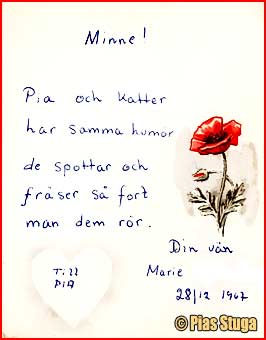 Minne!
Pia och Katter
har samma humor
de spottar och
fräser så fort
man dem rör.
Din vän
Marie
28/12 1967
Till
PIA
© Pias Stuga